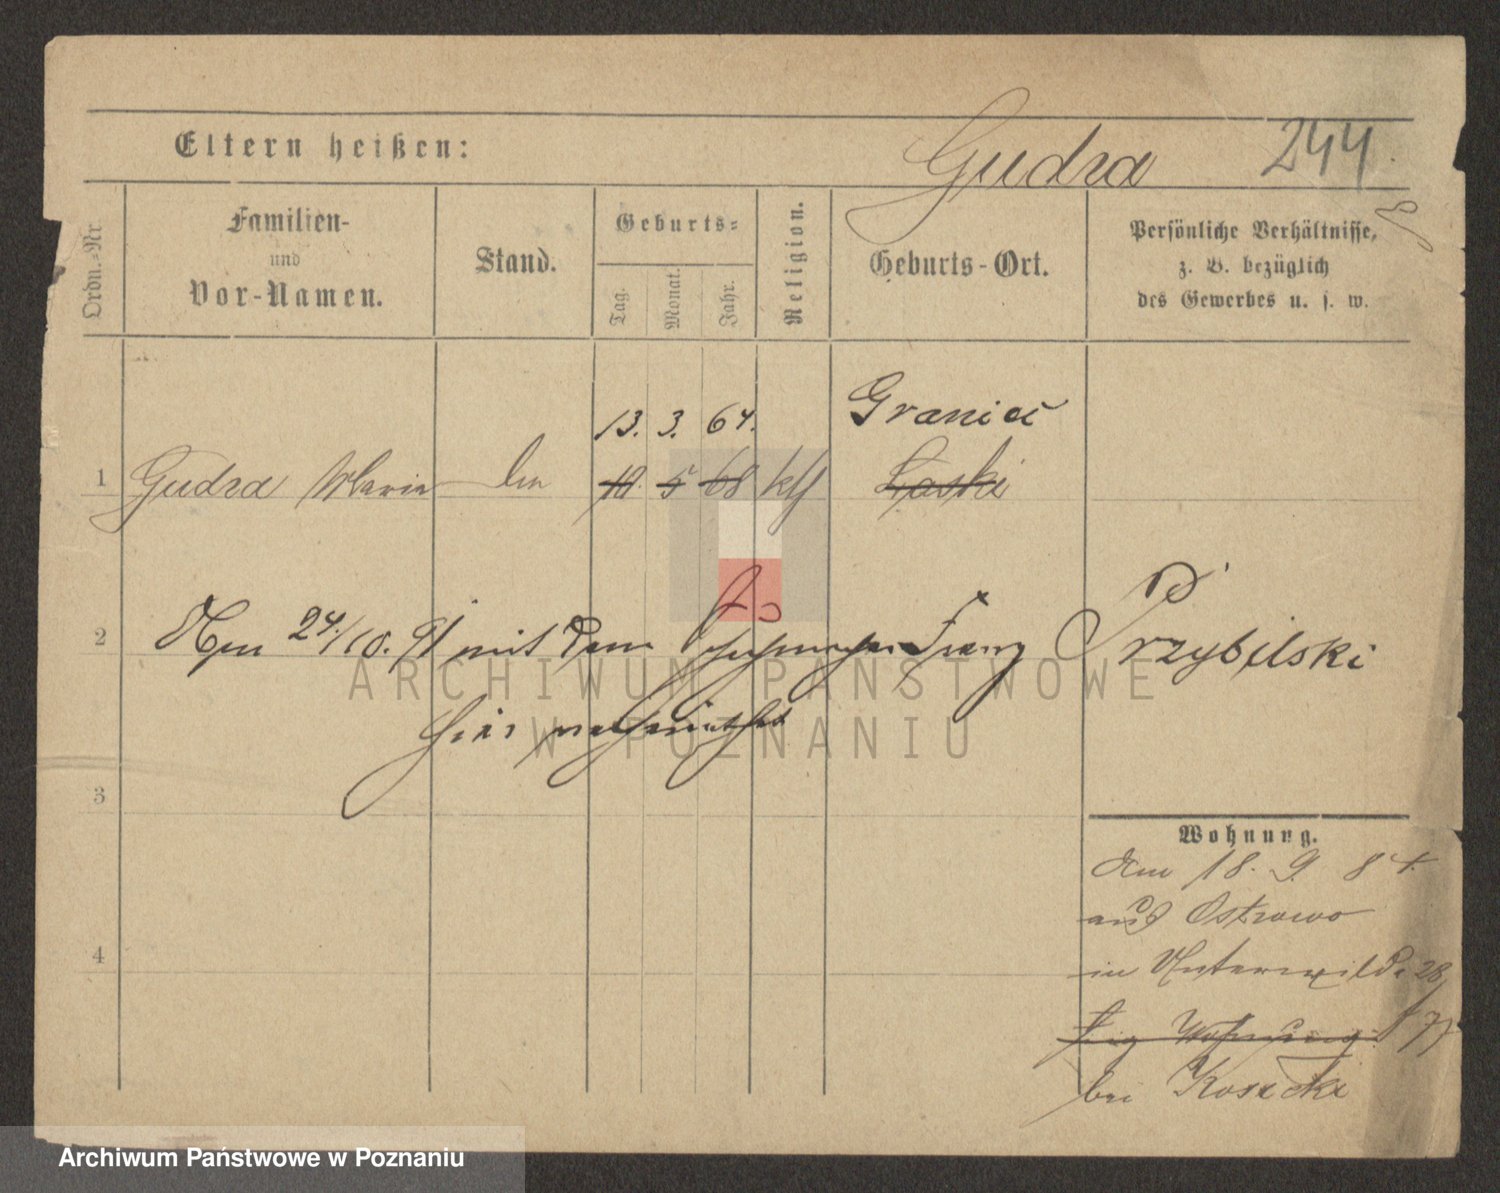 Eltern heißen:
Gudra
244.
Ordn.-Nr.
Familien-
und
Vor-Namen.
Stand.
Geburts-
Tag.
Monat.
Jahr.
Religion.
Geburts-Ort.
Persönliche Verhältnisse,
z. B. bezüglich
des Gewerbes u. s. w.
13. 3. 64. Graniec
1 Gudra Maria 10 5 68 kth Łaski
2 Am 24./10. 91 mit dem Schuhmacher Franz Przybilski
hier verheirathet
3
4
Wohnung.
Am 18. 9. 84.
aus Ostrowo
in Unterwilda 28
Eig. Wohnung 77
bei Kosicki
ARCHIWUM PAŃSTWOWE
W POZNANIU
Archiwum Państwowe w Poznaniu